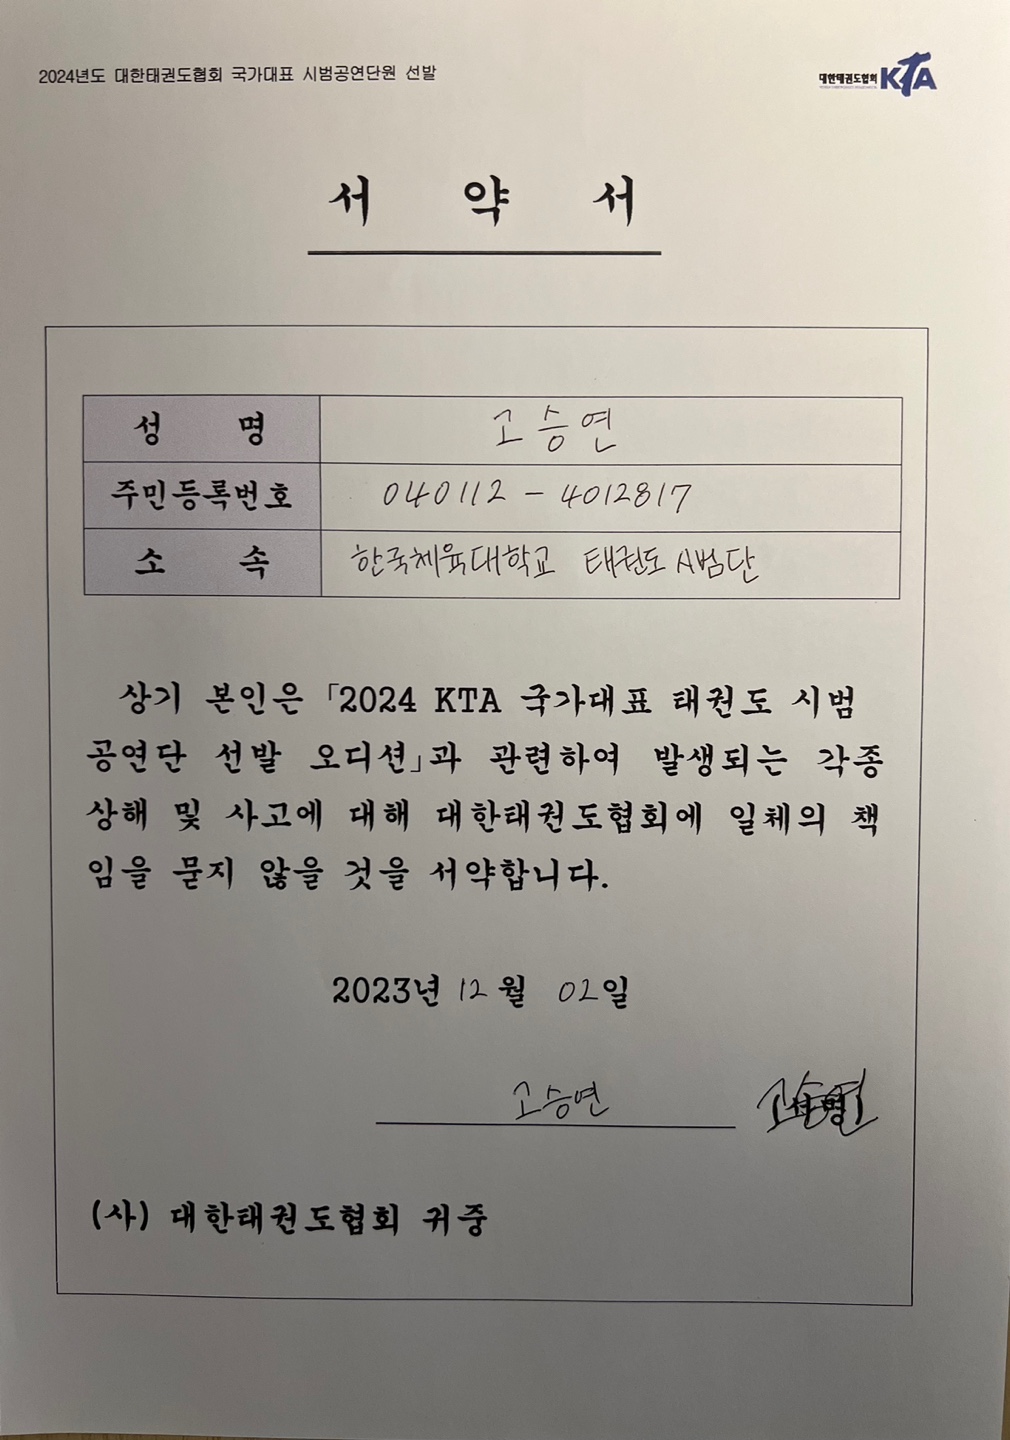 2024년도 대한태권도협회 국가대표 시범공연단원 선발
대한태권도협회 KTA
서 약 서
성 명 고승연
주민등록번호 040112 - 4012817
소 속 한국체육대학교 태권도 시범단
상기 본인은 「2024 KTA 국가대표 태권도 시범
공연단 선발 오디션」과 관련하여 발생되는 각종
상해 및 사고에 대해 대한태권도협회에 일체의 책
임을 묻지 않을 것을 서약합니다.
2023년 12월 02일
고승연 고승연
(사) 대한태권도협회 귀중